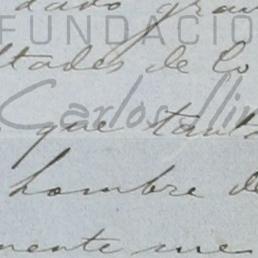 dado grav
FUNDACIÓ
ltades de lo
Carlos Llin
que tanto
hombre de
mente me